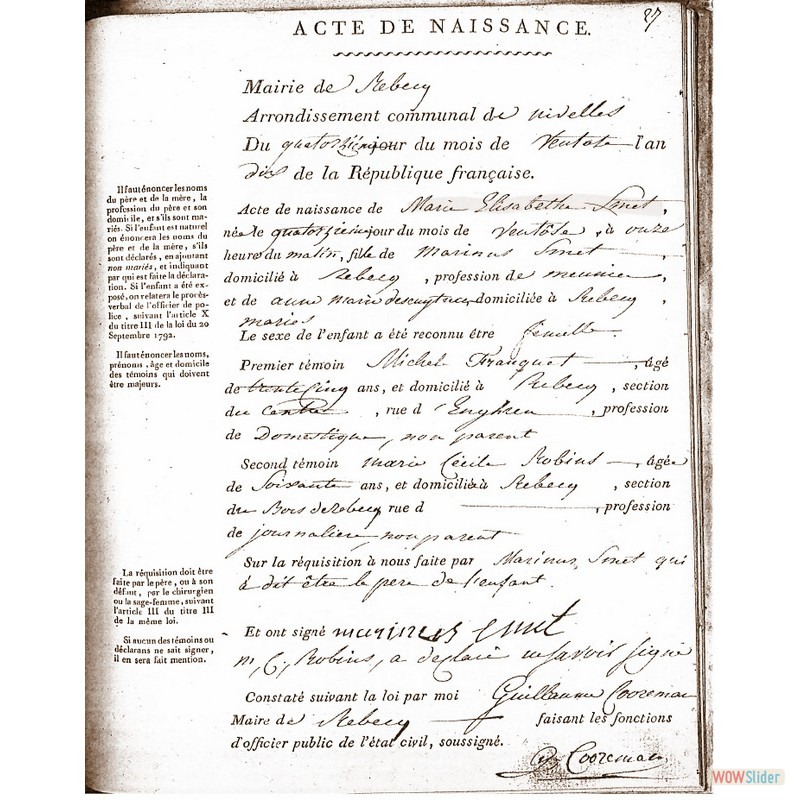 27
ACTE DE NAISSANCE.
Mairie de Rebecq
Arrondissement communal de nivelles
Du quatorzieme jour du mois de Ventose l'an
dix de la République française.
Acte de naissance de Marie Elisabethe Smet,
née le quatorzieme jour du mois de Ventôse, à onze
heures du matin, fille de Marinus Smet
domicilié à Rebecq, profession de meunier,
et de anne marie domiciliée à Rebecq,
mariés
Le sexe de l'enfant a été reconnu être femelle.
Premier témoin Michel Franquet, âgé
de trente cinq ans, et domicilié à Rebecq, section
du Centre, rue d'Enghien, profession
de Domestique, non parent
Second témoin marie Cécile Robins, âgée
de Soixante ans, et domiciliée à Rebecq, section
du Bois de Rebecq rue d, profession
de journaliere, non parent
Sur la réquisition à nous faite par Marinus Smet qui
à dit être le pere de l'enfant.
Et ont signé marinus smet
M, C, Robins, a declaré ne savoir signé
Constaté suivant la loi par moi Guillaume Cooreman
Maire de Rebecq faisant les fonctions
d'officier public de l'état civil, soussigné.
Cooreman
Il faut énoncer les noms
du père et de la mère, la
profession du père et son
domicile, et s'ils sont ma-
riés. Si l'enfant est naturel
on énoncera les noms du
père et de la mère, s'ils
sont déclarés, en ajoutant
non mariés, et indiquant
par qui est faite la déclara-
ration. Si l'enfant a été ex-
posé, on relatera le procès-
verbal de l'officier de po-
lice, suivant l'article X
du titre III de la loi du 20
Septembre 1792.
Il faut énoncer les noms,
prénoms, âge et domicile
des témoins qui doivent
être majeurs.
La réquisition doit être
faite par le père, ou à son
défaut, par le chirurgien
ou la sage-femme, suivant
l'article III du titre III
de la même loi.
Si aucun des témoins ou
déclarans ne sait signer,
il en sera fait mention.
WOWSlider